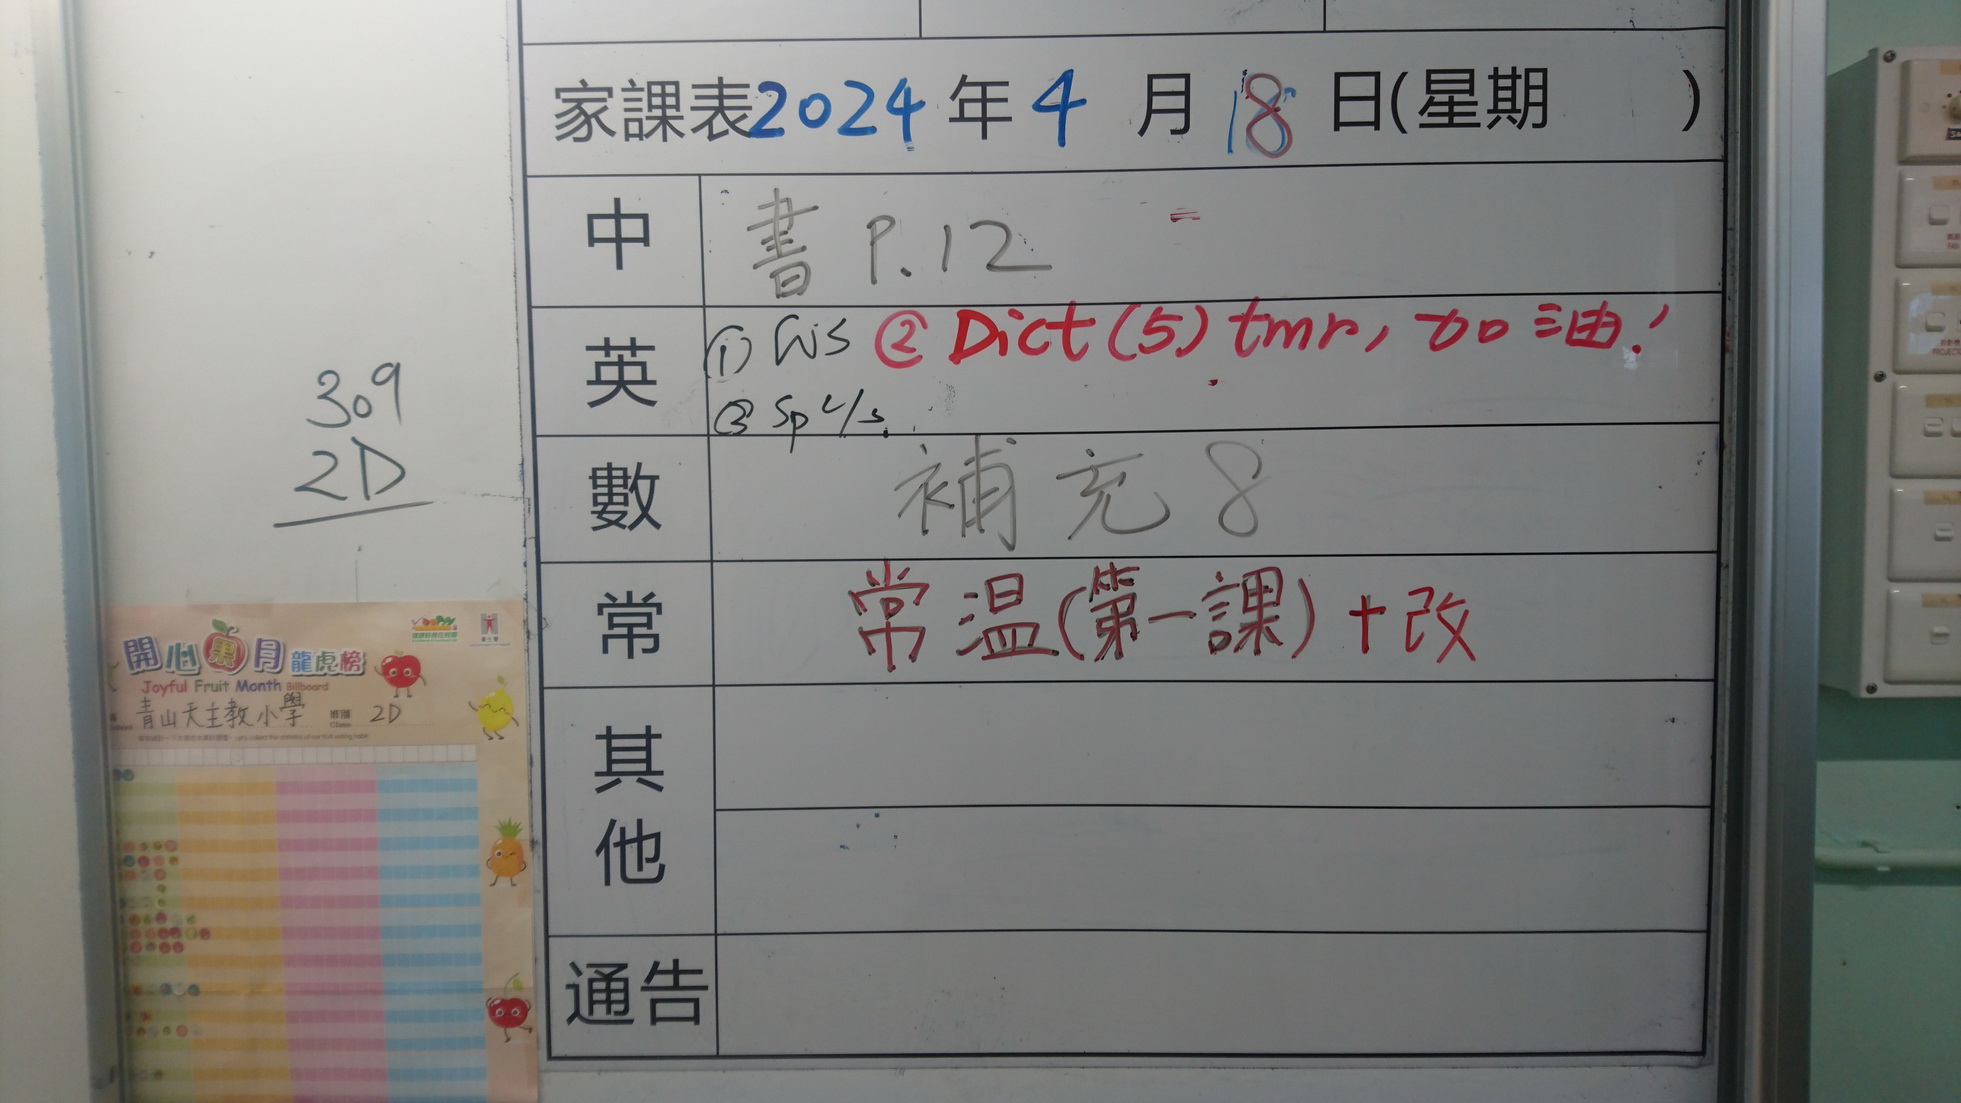 家課表2024年4月18日(星期 )
中 書 P.12
英 ① WS ② Dict (5) tmr, 加油!
③ Sp L/S
數 補充 8
常 常温(第一課)+改
其他
通告
309
2D
開心果月龍虎榜
Joyful Fruit Month Billboard
青山天主教小學 班別 2D
Class